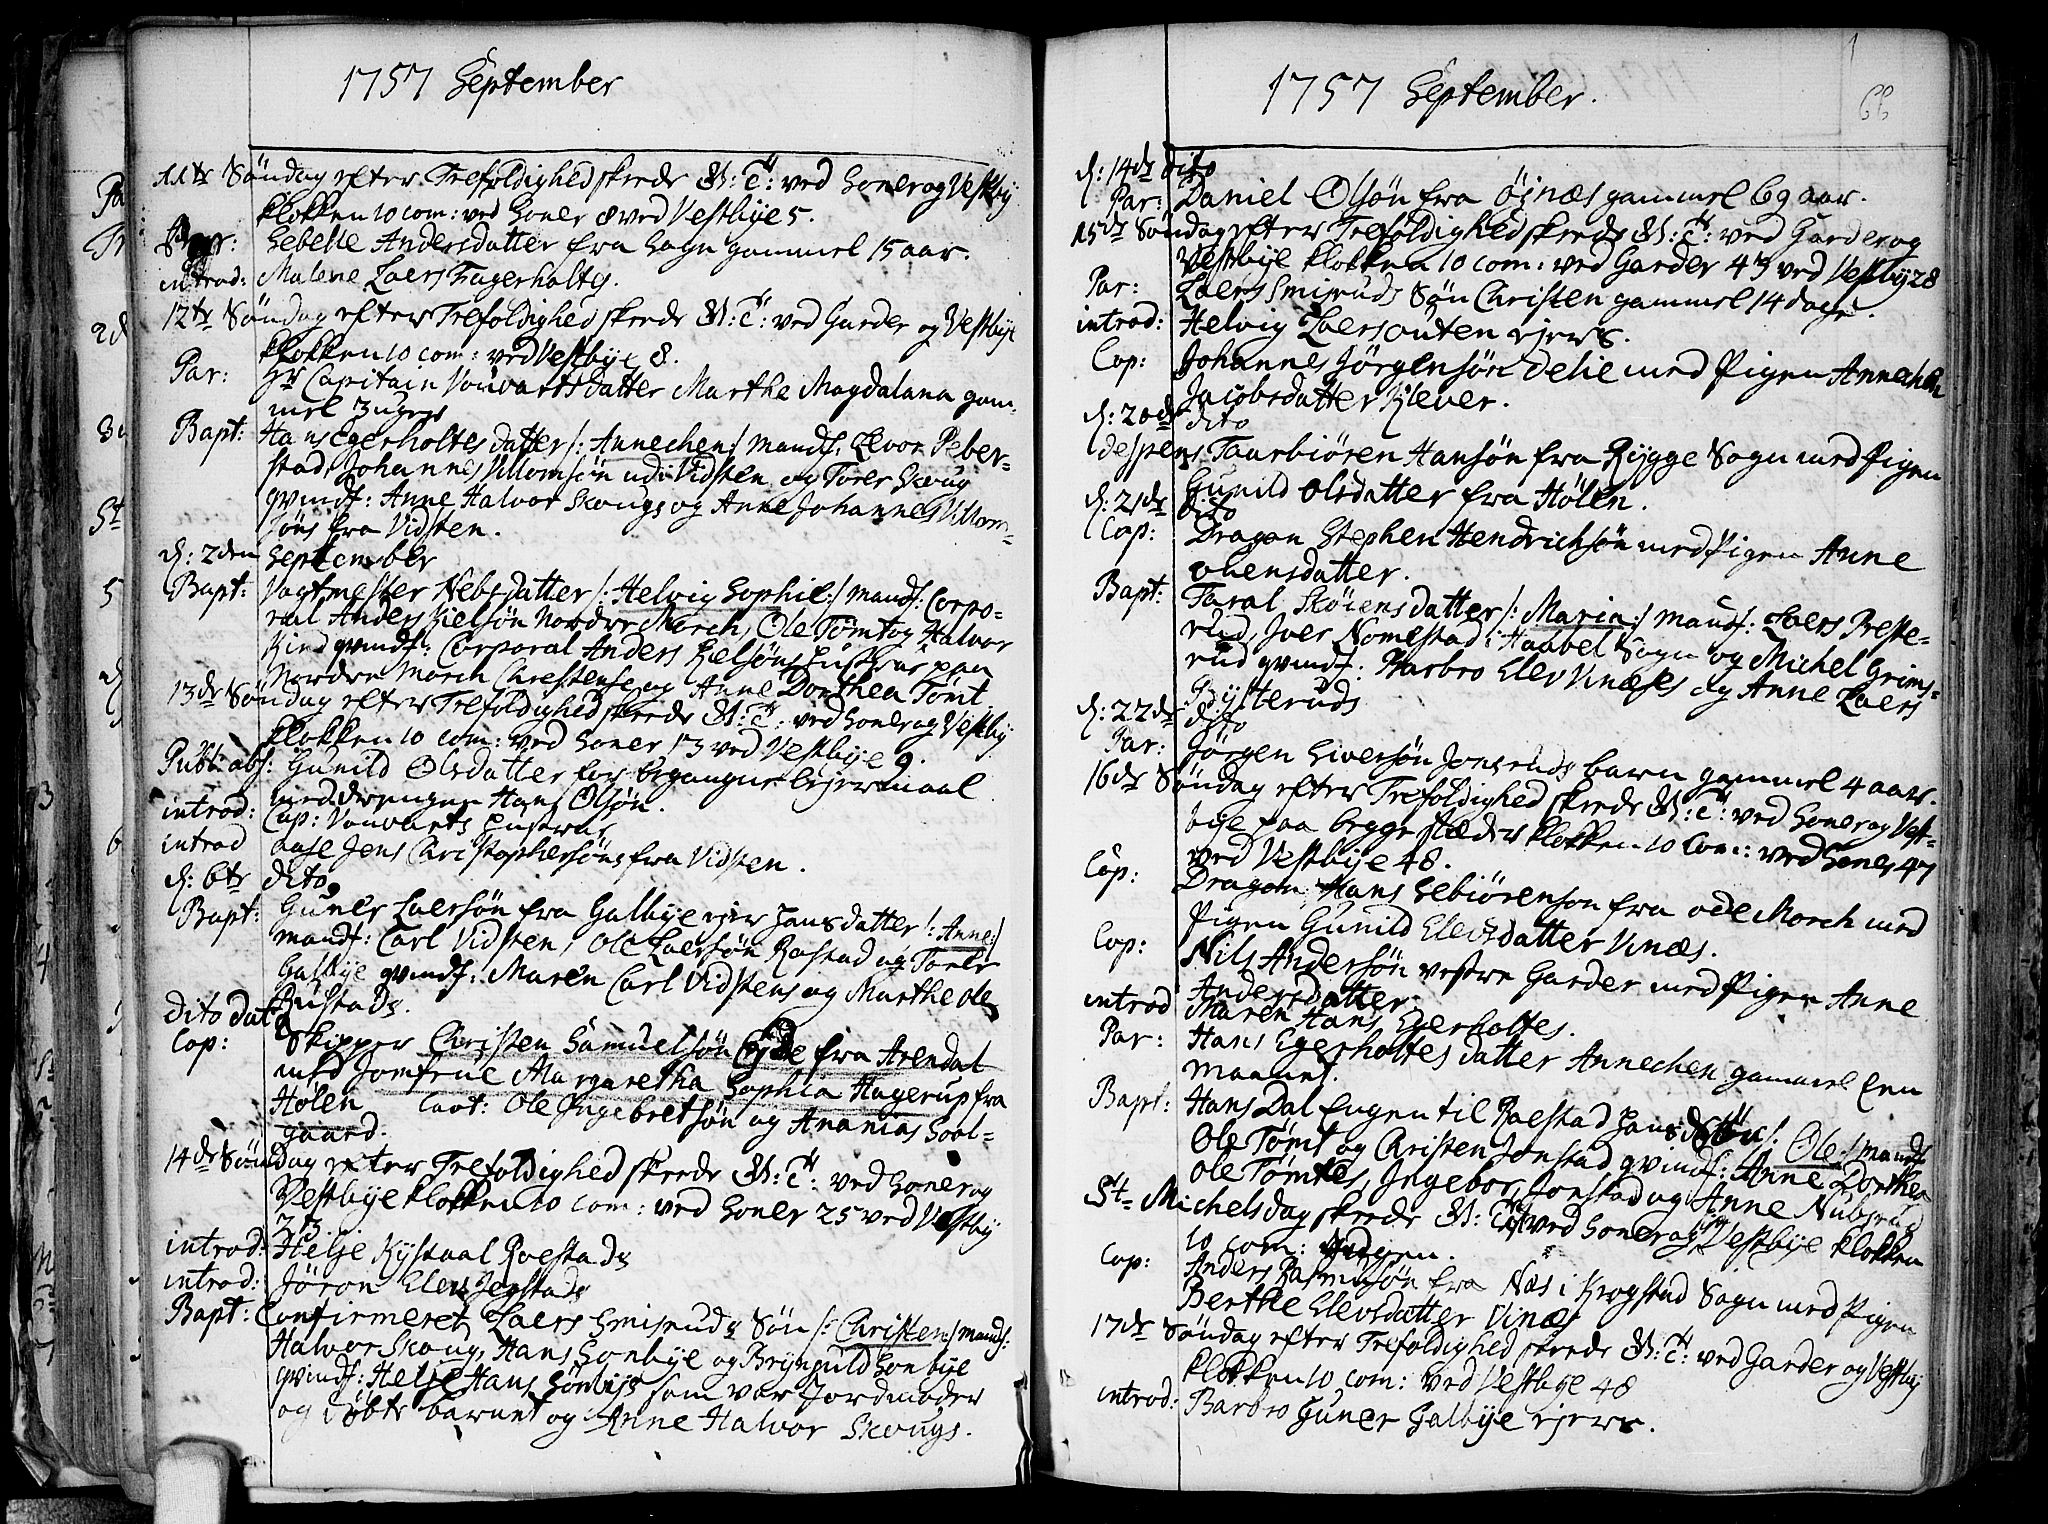 1757 September
11te Söndag efter Trefoldighed skrede G: T: ved Soner og Vestby
klokken 10 com: ved Soner 8 ved Vestbije 5.
Par: Sebelle Andersdatter fra Sogn gammel 15 aar.
introd: Malene Laers Fagerholtes.
12te Söndag efter Trefoldighed skrede G: T: ved Garder og Vestbije
klokken 10 com: ved Vestbije 8.
Par: Hr Capitain Vouvarts datter Marthe Magdalana gam-
mel 3 uger
Bapt: Hans Egerholtes datter /: Annechen :/ mandf: Levor Peber-
stad, Johannes Villomsön udi Vidsten, og Torer Skoug
qvindf: Anne Halvor Skougs og Anne Johannes Villom-
söns fra Vidsten.
d: 2den September
Bapt: Vagtmester Nebs datter /: Helvig Sophie :/ mandf: Corpo-
ral Anders Kielsön Nordre Morch, Ole Tömt og Halvor
Kind qvindf: Corporal Anders Kielsöns Hustrue paa
Nordre Morch Chrestense og Anne Dorthea Tömt
13de Söndag efter Trefoldighed skrede G: T: ved Soner og Vestby
klokken 10 com: ved Soner 13 ved Vestbije 9.
Publ: abs: Gunild Olsdatter for begangne lejermaal
med drengen Hans Olsön.
introd: Cap: Vouvarts Hustrue
introd Aase Jens Christophersöns fra Vidsten.
d: 6te dito
Bapt: Guner Laersön fra Galbye ejer Jans datter /: Anne :/
mandf: Carl Vidsten, Ole Laersön Rastad og Torer
Galbije qvindf: Maren Carl Vidstens og Marthe Ole
Rustads.
dito dato
Cop: Skipper Christen Samuelsön Gide fra Arendal
med Jomfrue Margaretha Sophia Hagerup fra
Hölen Caot: Ole Ingebretsön og Ananias Sool-
gaard.
14de Söndag efter Trefoldighed skrede G: T: ved Soner og
Vestbije klokken 10 com: ved Soner 25 ved Vestby
23.
introd: Helje Kystaal Roestads
introd: Jöron Elevs Jegstads
Bapt: Confirmeret Laers Smisruds Sön /: Christen :/ mandf:
Halvor Skoug, Hans Sonbije og Brynguld Sonbije
qvindf: Helje Hans Sönbijs som var Jordmoder
og döbte barnet og Anne Halvor Skougs.
1757 September.
66
d: 14de dito
Par: Daniel Olsön fra Öjnæs gammel 69 aar.
15de Söndag efter Trefoldighed skrede G: T: ved Garder og
Vestbije klokken 10 com: ved Garder 43 ved Vestbij 28
Par: Laers Smisruds Sön Christen gammel 14 dage.
introd: Helvig Laers outen ejers.
Cop: Johannes Jörgensön Delie med Pigen Annechen
Jacobsdatter Klever.
d: 20de dito
despens Taarbiören Hansön fra Rygge Sogn med Pigen
Gunild Olsdatter fra Hölen.
d: 21de dito
Cop: Dragon Stephen Hendrichsön med Pigen Anne
Ouensdatter.
Bapt: Taral Sköiens datter /: Maria :/ mandf: Laers Beste-
rud, Joer Nomestad i Haabel Sogn og Michel Grims-
rud qvindf: Barbro Elev Vinæses og Anne Laers
Bysteruds
d: 22de dito
Par: Jörgen Siversön Jonsruds barn gammel 4 aar.
16de Söndag efter Trefoldighed skrede G: T: ved Soner og Vest-
bije paa begge stæder klokken 10 Com: ved Soner 47
ved Vestbije 48.
Cop: Dragon Hans Sebiörenson fra öde Morch med
Pigen Gunild Elevsdatter Vinæs.
Cop: Nils Andersön vestre Garder med Pigen Anne
Andersdatter.
introd Maren Hans Egerholtes.
Par: Hans Egerholtes datter Annechen gammel Een
maanet.
Bapt: Hans Dal Eugen til Roestad Jans Sön /: Ole :/ mandf
Ole Tömt og Christen Jonstad qvindf: Anne Dorthea
Ole Tömtes, Ingebor Jonstad og Anne Nubsrud
St. Michels dag skrede G: T: ved Soner og Vestbije klokken
10 com: ingen.
Cop: Anders Rasmusön fra Næs i Krogstad Sogn med Pigen
Berthe Elevsdatter Vinæs
17de Söndag efter Trefoldighed skrede G: T: ved Garder og Vestbij
klokken 10 com: ved Vestbije 48
introd: Barbro Guner Galbije ejers.